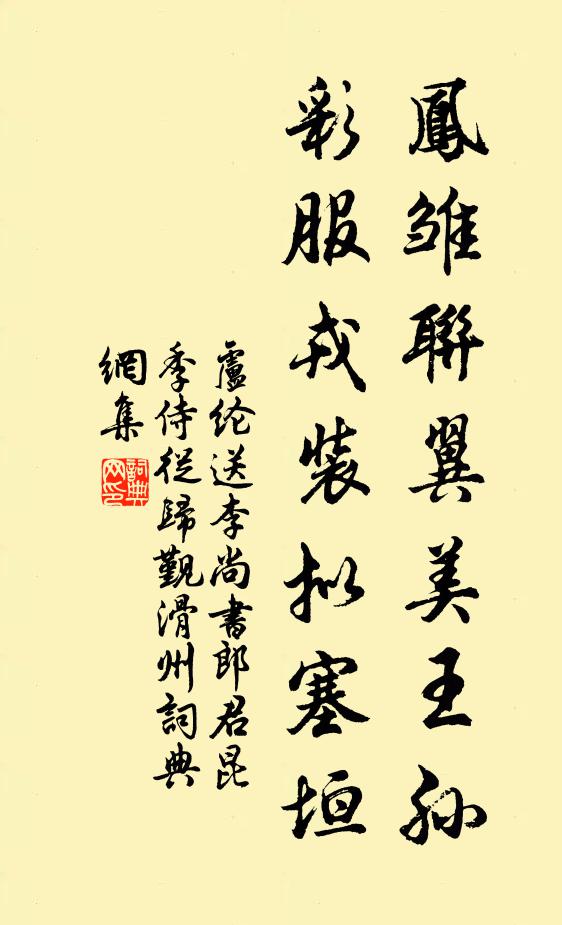 鳳雛聯翼美王孫
彩服戎裝拟塞垣
盧纶送李尚書郎君昆
季侍從歸覲滑州詞典
網集
詞典
网印